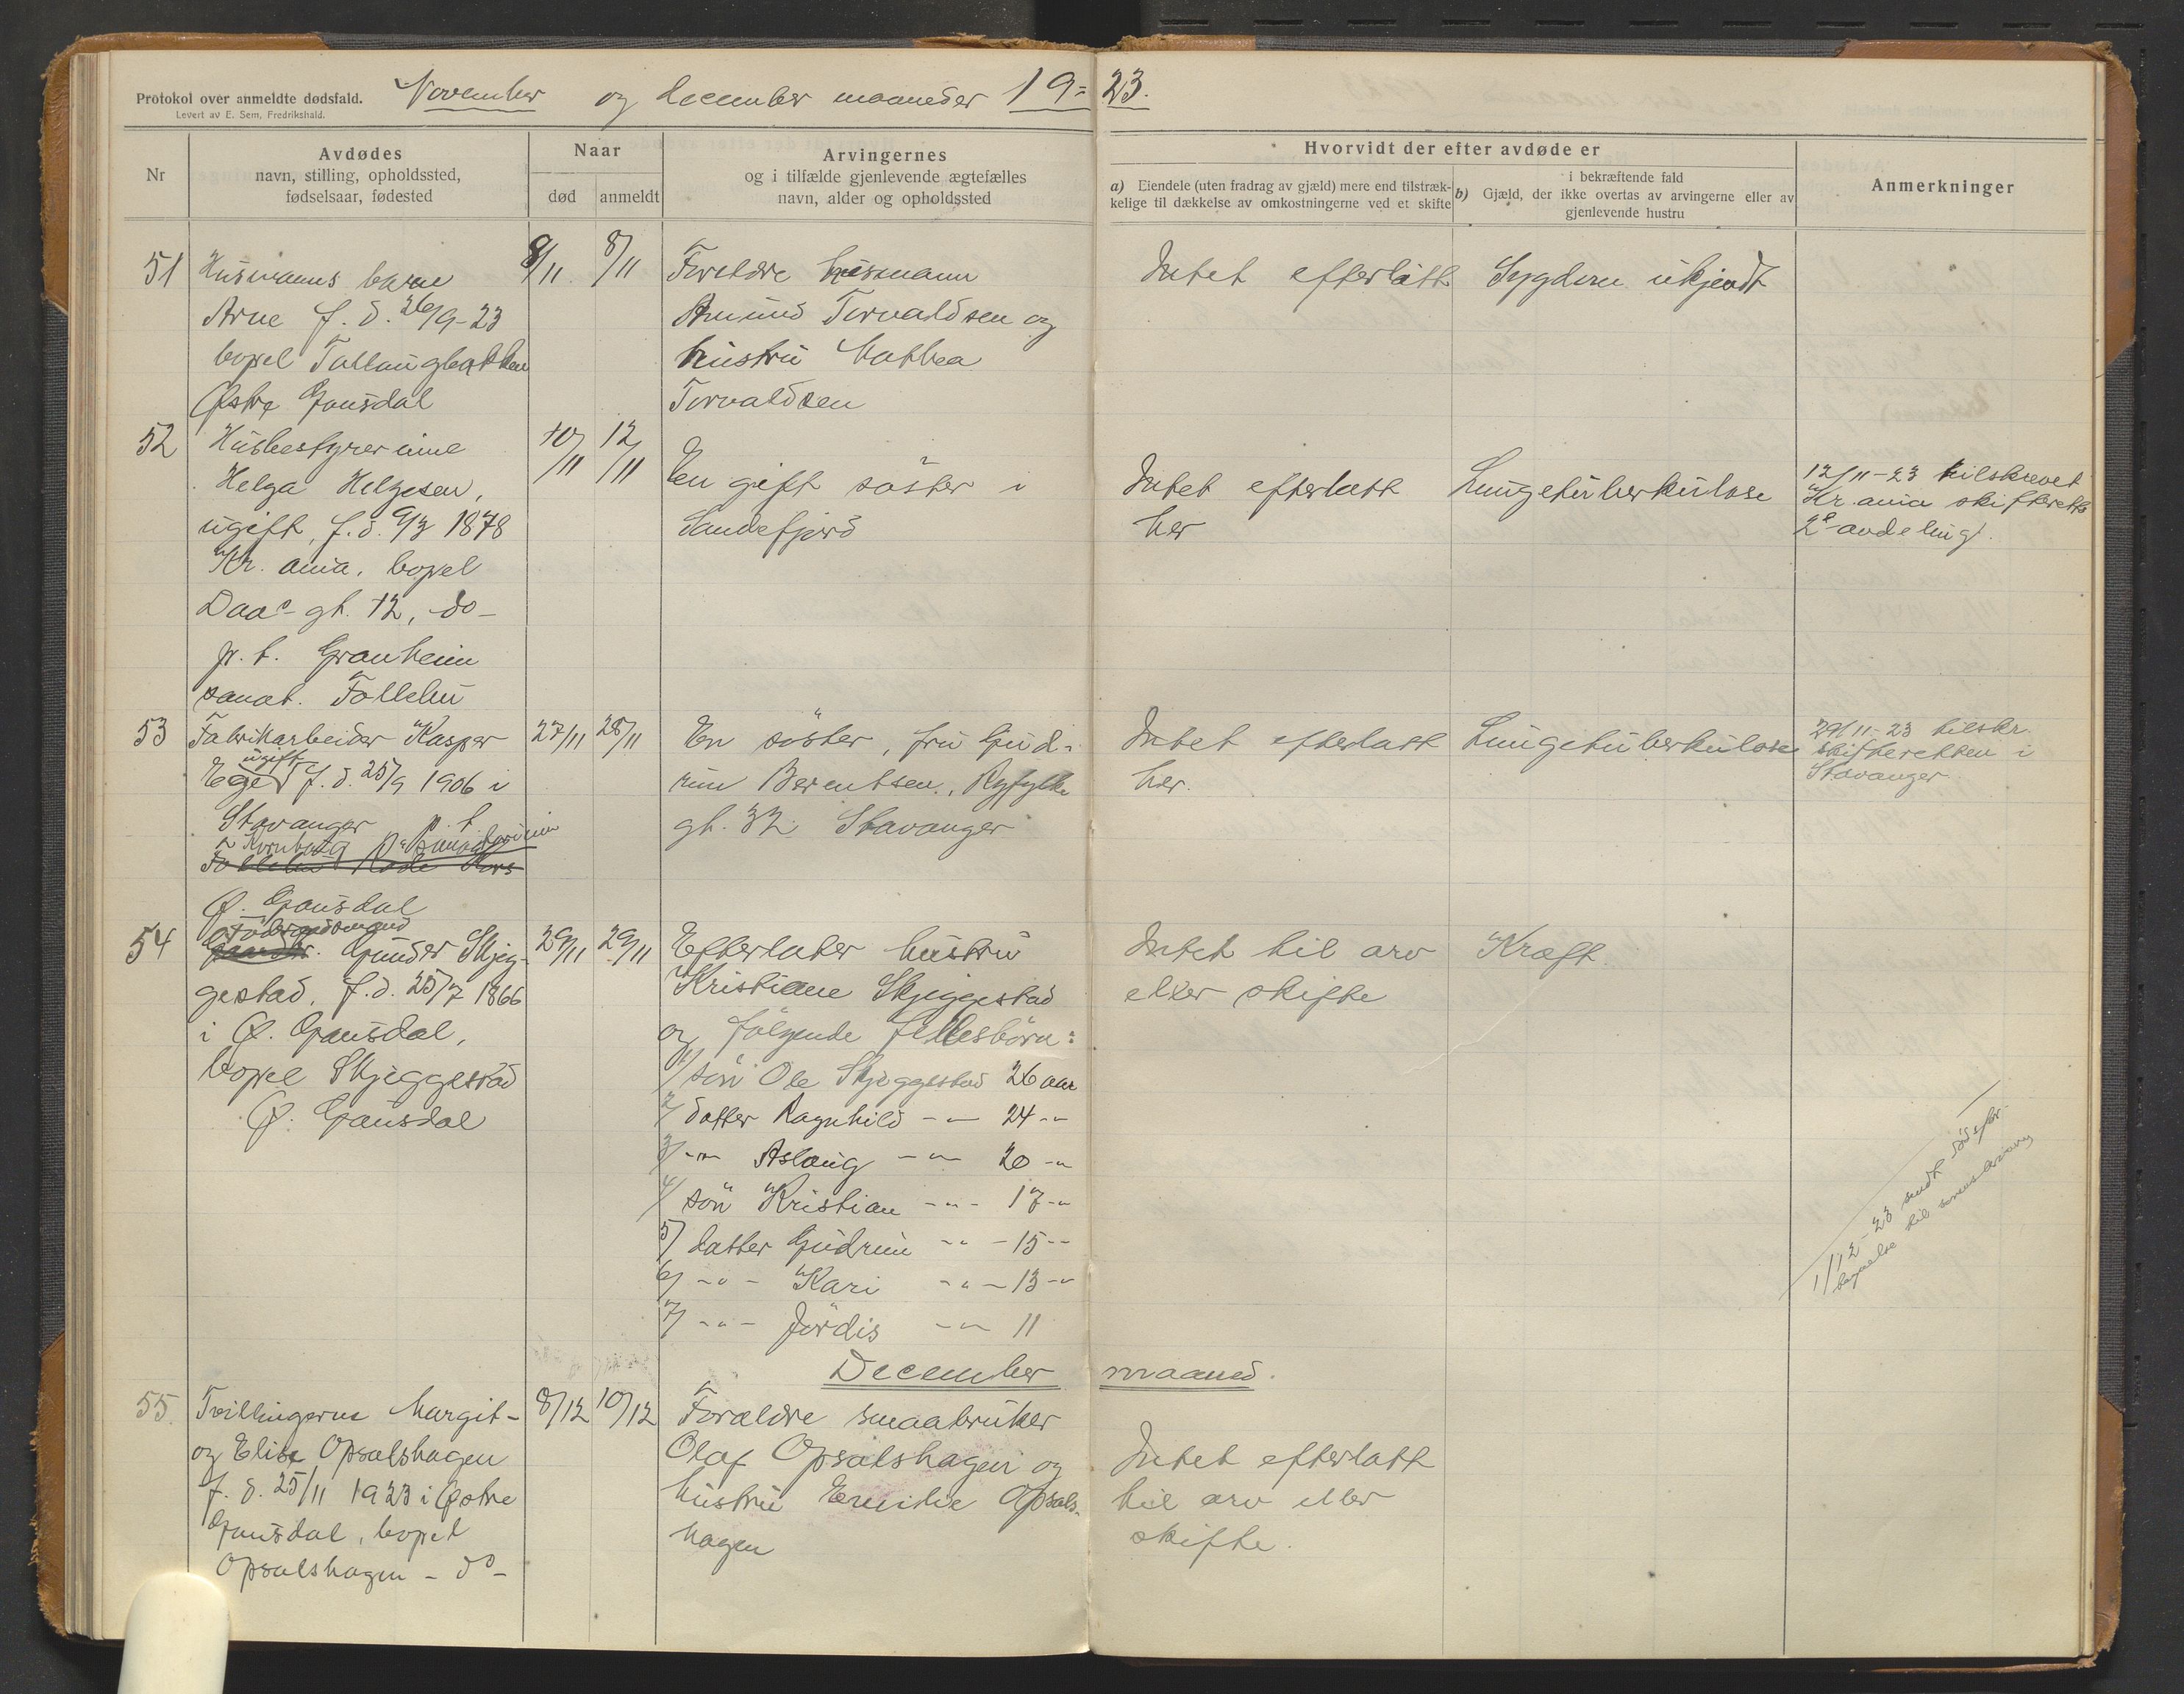 Protokol over anmeldte dødsfald. November og december maaneder 19-23.
Levert av E. Sem, Fredrikshald.
Nr
Avdødes
navn, stilling, opholdssted,
fødselsaar, fødested
Naar
død anmeldt
Arvingernes
og i tilfælde gjenlevende ægtefælles
navn, alder og opholdssted
Hvorvidt der efter avdøde er
a) Eiendele (uten fradrag av gjæld) mere end tilstræk-
kelige til dækkelse av omkostningerne ved et skifte
i bekræftende fald
b) Gjæld, der ikke overtas av arvingerne eller av
gjenlevende hustru
Anmerkninger
51 Husmanns barn 8/11 8/11
Arne f. d. 26/9-23
bopel
Østre Gausdal
Foreldre husmann
Amund Torvaldsen og
hustru Mathea
Torvaldsen
Intet efterlatt
Sygdom ukjendt
52 Husbestyrerinne 10/11 12/11
Helga Helgesen,
ugift, f. d. 9/3 1878
Kr. ania, bopel
Daas gt. 12, -do-
p. t. Granheim
sanat. Follebu
En gift søster i
Sandefjord
Intet efterlatt
her
Lungetuberkulose
12/11-23 tilskrevet
Kr. ania skifterett
2 avdeling.
53 Fabrikarbeider Kasper 27/11 28/11
ugift
Ege f. d. 25/9 1906 i
Stavanger p. t.
Kornhaug Sanatorium
Follebu Røde Kors
Ø. Gausdal
En søster, fru Gud-
run Berentsen, Ryfylke
gt. 32 Stavanger
Intet efterlatt
her.
Lungetuberkulose
29/11-23 tilskr.
skifteretten i
Stavanger
54 Gunder Skjeg- 29/11 29/11
gestad, f. d. 25/7 1866
i Ø. Gausdal,
bopel Skjeggestad
Ø. Gausdal
Efterlater hustru
Kristiane Skjeggestad
og følgende fellesbørn:
1/ søn Ole Skjeggestad 26 aar
2/ datter Ragnhild -"- 24 -"-
3/ -"- Aslaug -"- 20 -"-
4/ søn Kristian -"- 17 -"-
5/ datter Gudrun -"- 15 -"-
6/ -"- Kari -"- 13 -"-
7/ -"- Jørdis -"- 11
Intet til arv
eller skifte
Kræft.
1/12-23 sendt
til
December maaned.
55. Tvillingerne Margit- 8/12 10/12
og Elise Opsalshagen
f. d. 25/11 1923 i Østre
Gausdal, bopel
Opsalshagen -do-
Forældre smaabruker
Olaf Opsalshagen og
hustru Emilie Opsals-
hagen
Intet efterlatt
til arv eller
skifte.